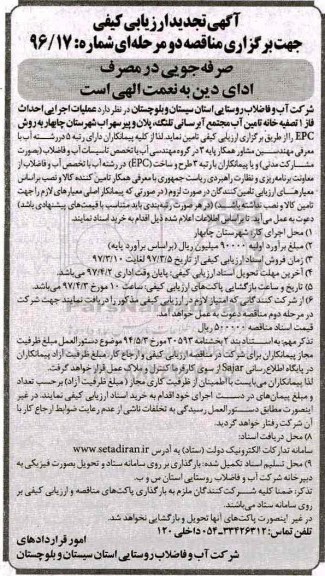 آگهی تجدید ارزیابی کیفی
جهت برگزاری مناقصه دو مرحله‌ای شماره: ۹۶/۱۷
صرفه جویی در مصرف
ادای دین به نعمت الهی است
شرکت آب و فاضلاب روستایی استان سیستان و بلوچستان در نظر دارد عملیات اجرایی احداث
فاز ۱ تصفیه خانه تامین آب مجتمع آبرسانی تلنگ، پلان و پیرسهراب شهرستان چابهار به روش
EPC را از طریق برگزاری ارزیابی کیفی تامین نماید. لذا از کلیه پیمانکاران دارای رتبه ۵ در رشته آب با
معرفی مهندسین مشاور همکار پایه ۳ در گروه مهندسی آب با تخصص تاسیسات آب و فاضلاب (بصورت
مشارکت مدنی) و یا پیمانکاران با رتبه ۴ طرح و ساخت (EPC) در رشته آب با تخصص آب و فاضلاب از
معاونت برنامه‌ریزی و نظارت راهبردی ریاست جمهوری با معرفی همکار تامین کننده کالا و نصب براساس
معیارهای ارزیابی تامین کنندگان در صورت لزوم (در صورتی که پیمانکار اصلی معیارهای لازم را جهت
تامین کالا و نصب نداشته باشند) (در هر صورت رتبه‌بندی باید متناسب با قیمت‌های پیشنهادی باشد)
دعوت به عمل می‌آید تا براساس اطلاعات اعلام شده ذیل اقدام به خرید اسناد نمایند.
۱) محل اجرای کار: شهرستان چابهار
۲) مبلغ برآورد اولیه ۹۰۰۰۰ میلیون ریال (براساس برآورد پایه)
۳) زمان فروش اسناد ارزیابی کیفی از تاریخ ۹۷/۳/۵ لغایت ۹۷/۳/۱۰
۴) آخرین مهلت تحویل اسناد ارزیابی کیفی: پایان وقت اداری ۹۷/۴/۲ می‌باشد.
۵) تاریخ و ساعت بازگشایی پاکت‌های ارزیابی کیفی: ساعت ۱۰ مورخ ۹۷/۴/۳ می‌باشد.
۶) از شرکت کنندگانی که امتیاز لازم در ارزیابی کیفی مذکور را دریافت نمایند جهت شرکت
در مرحله دوم مناقصه دعوت به عمل خواهد آمد.
قیمت اسناد مناقصه ۵۰۰۰۰۰ ریال
تذکر مهم: به استناد بند ۲ بخشنامه ۳۰۵۹۳ مورخ ۹۴/۵/۳ موضوع دستورالعمل مبلغ ظرفیت
مجاز پیمانکاران برای شرکت در مناقصه ارزیابی کیفی و ارجاع کار، مبلغ ظرفیت آزاد پیمانکاران
در پایگاه اطلاع رسانی Sajar از سوی کارفرما کنترل و ملاک عمل قرار خواهد گرفت.
لذا پیمانکاران می‌بایست با اطمینان از ظرفیت کاری مجاز (مبلغ ظرفیت آزاد) بر حسب تعداد
و مبلغ پیمان‌های در دست اجرای خود اقدام به خرید اسناد ارزیابی کیفی نمایند، در غیر
اینصورت مطابق دستورالعمل رسیدگی به تخلفات ناشی از عدم رعایت ضوابط ارجاع کار با
آن شرکت رفتار خواهد گردید.
۸) محل دریافت اسناد:
سامانه تدارکات الکترونیک دولت (ستاد) به آدرس www.setadiran.ir
۹) محل تسلیم اسناد تکمیل شده: بارگذاری بر روی سامانه ستاد و تحویل بصورت فیزیکی به
دبیرخانه شرکت آب و فاضلاب روستایی استان س و ب.
تذکر: ضمنا کلیه شرکت کنندگان ملزم به بارگذاری پاکت‌های مناقصه و ارزیابی کیفی بر
روی سامانه ستاد می‌باشند.
در غیر اینصورت پاکت‌های آنها تحویل و بازگشایی نخواهد شد.
تلفن تماس: ۳۳۴۲۶۳۱۲-۰۵۴ داخلی ۱۲۰
امور قراردادهای
شرکت آب و فاضلاب روستایی استان سیستان و بلوچستان